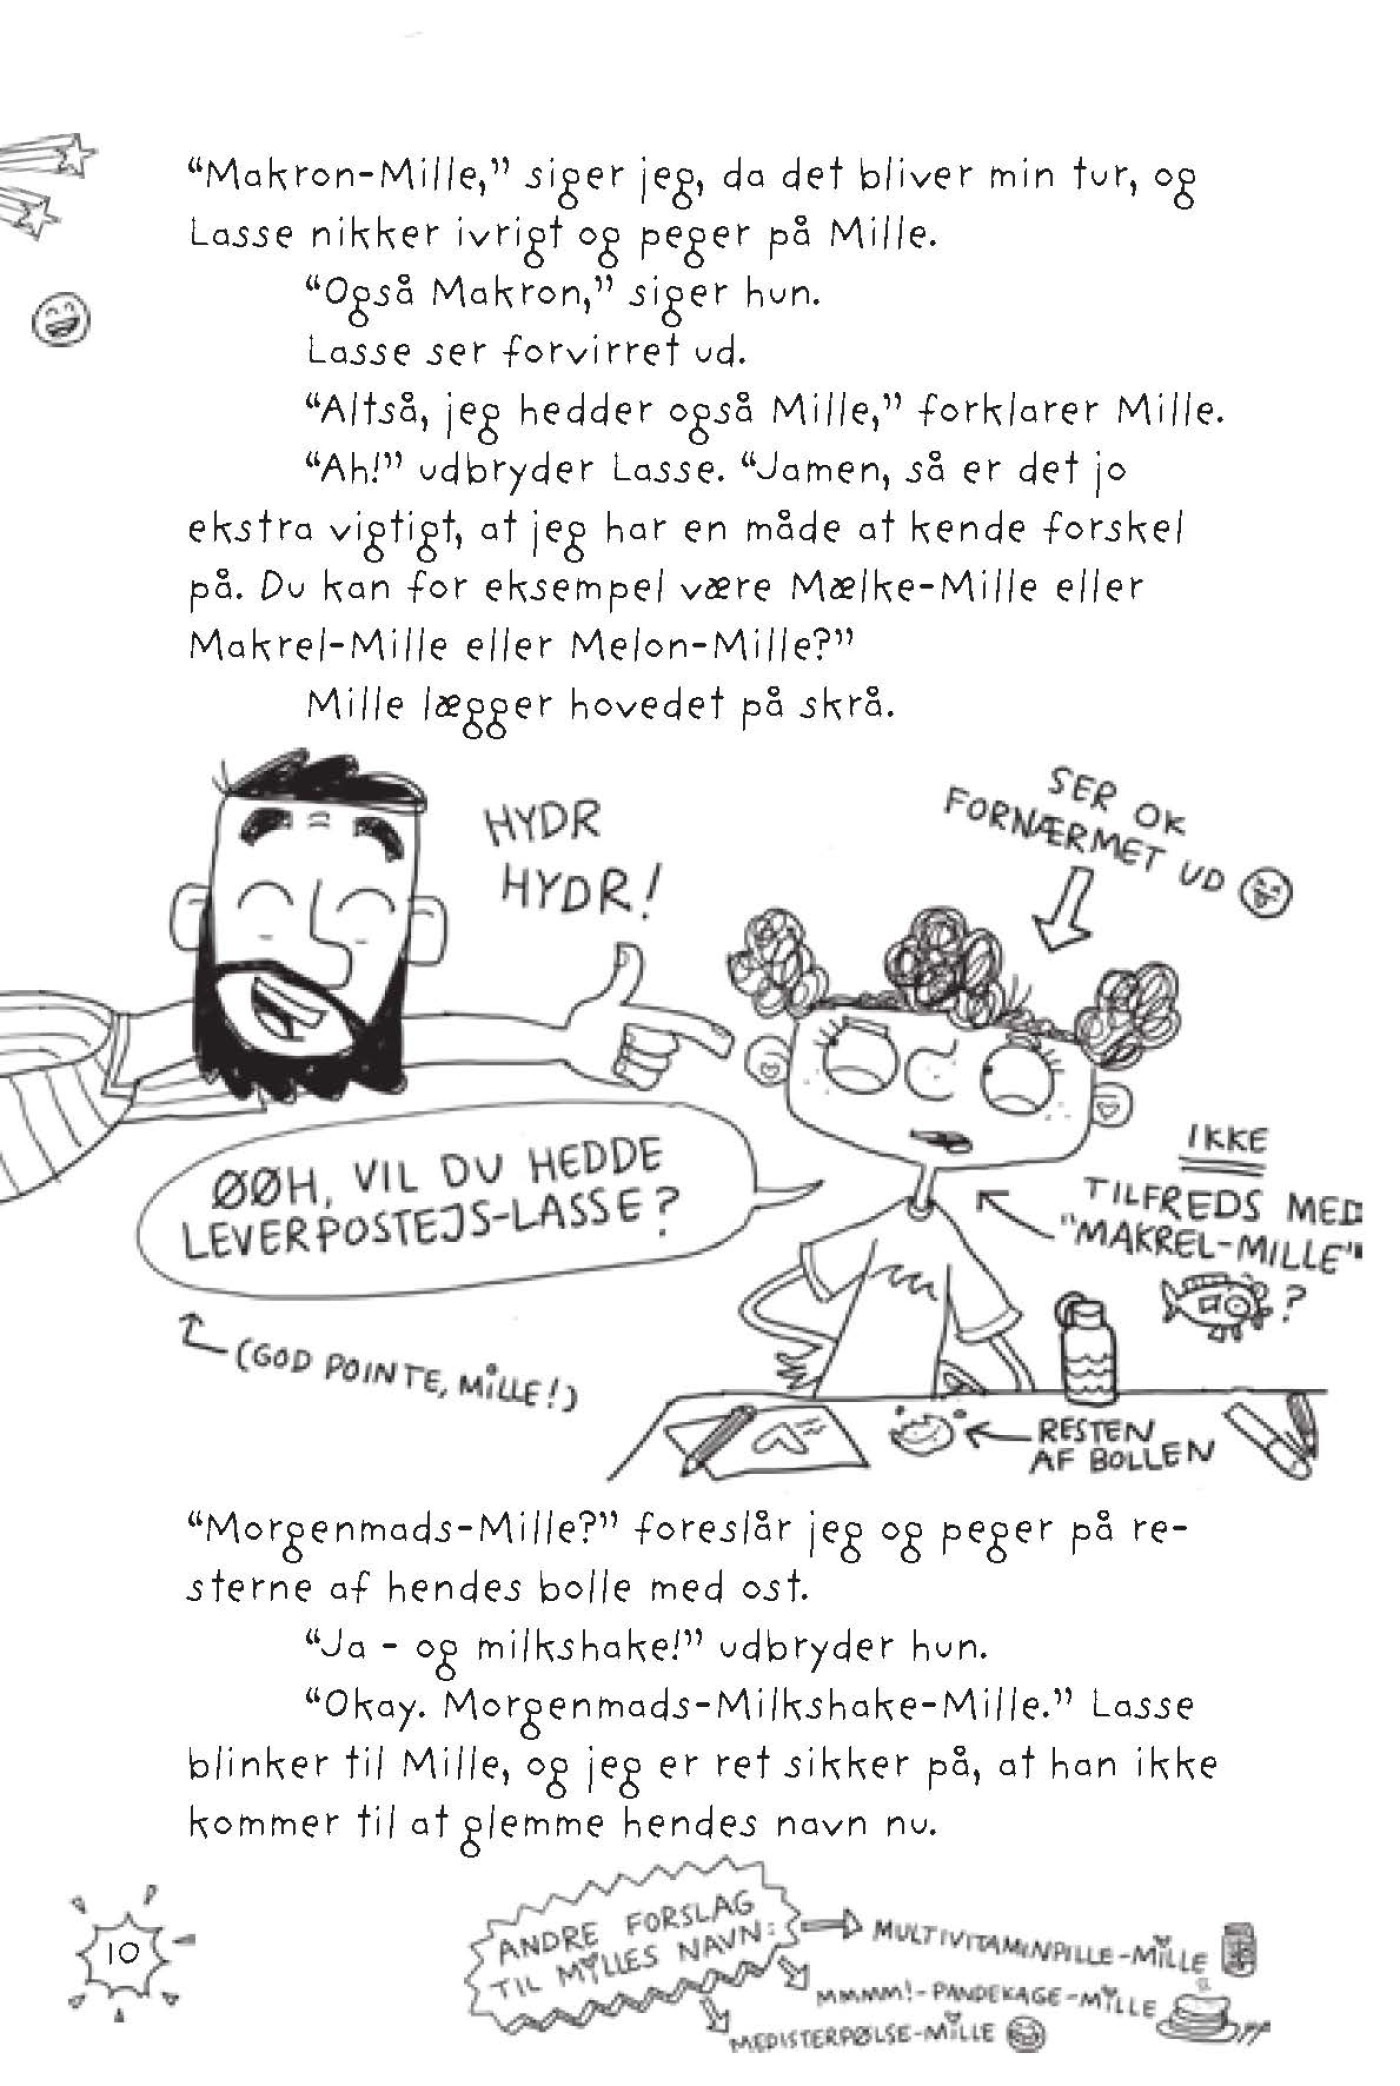 “Makron-Mille,” siger jeg, da det bliver min tur, og
Lasse nikker ivrigt og peger på Mille.
“Også Makron,” siger hun.
Lasse ser forvirret ud.
“Altså, jeg hedder også Mille,” forklarer Mille.
“Ah!” udbryder Lasse. “Jamen, så er det jo
ekstra vigtigt, at jeg har en måde at kende forskel
på. Du kan for eksempel være Mælke-Mille eller
Makrel-Mille eller Melon-Mille?”
Mille lægger hovedet på skrå.
HYDR
HYDR!
SER OK
FORNÆRMET UD
ØØH, VIL DU HEDDE
LEVERPOSTEJS-LASSE?
(GOD POINTE, MILLE!)
IKKE
TILFREDS MED
"MAKREL-MILLE"
?
RESTEN
AF BOLLEN
“Morgenmads-Mille?” foreslår jeg og peger på re-
sterne af hendes bolle med ost.
“Ja - og milkshake!” udbryder hun.
“Okay. Morgenmads-Milkshake-Mille.” Lasse
blinker til Mille, og jeg er ret sikker på, at han ikke
kommer til at glemme hendes navn nu.
10
ANDRE FORSLAG
TIL MILLES NAVN:
MULTIVITAMINPILLE-MILLE
MMMM!-PANDEKAGE-MILLE
MEDISTERPØLSE-MILLE